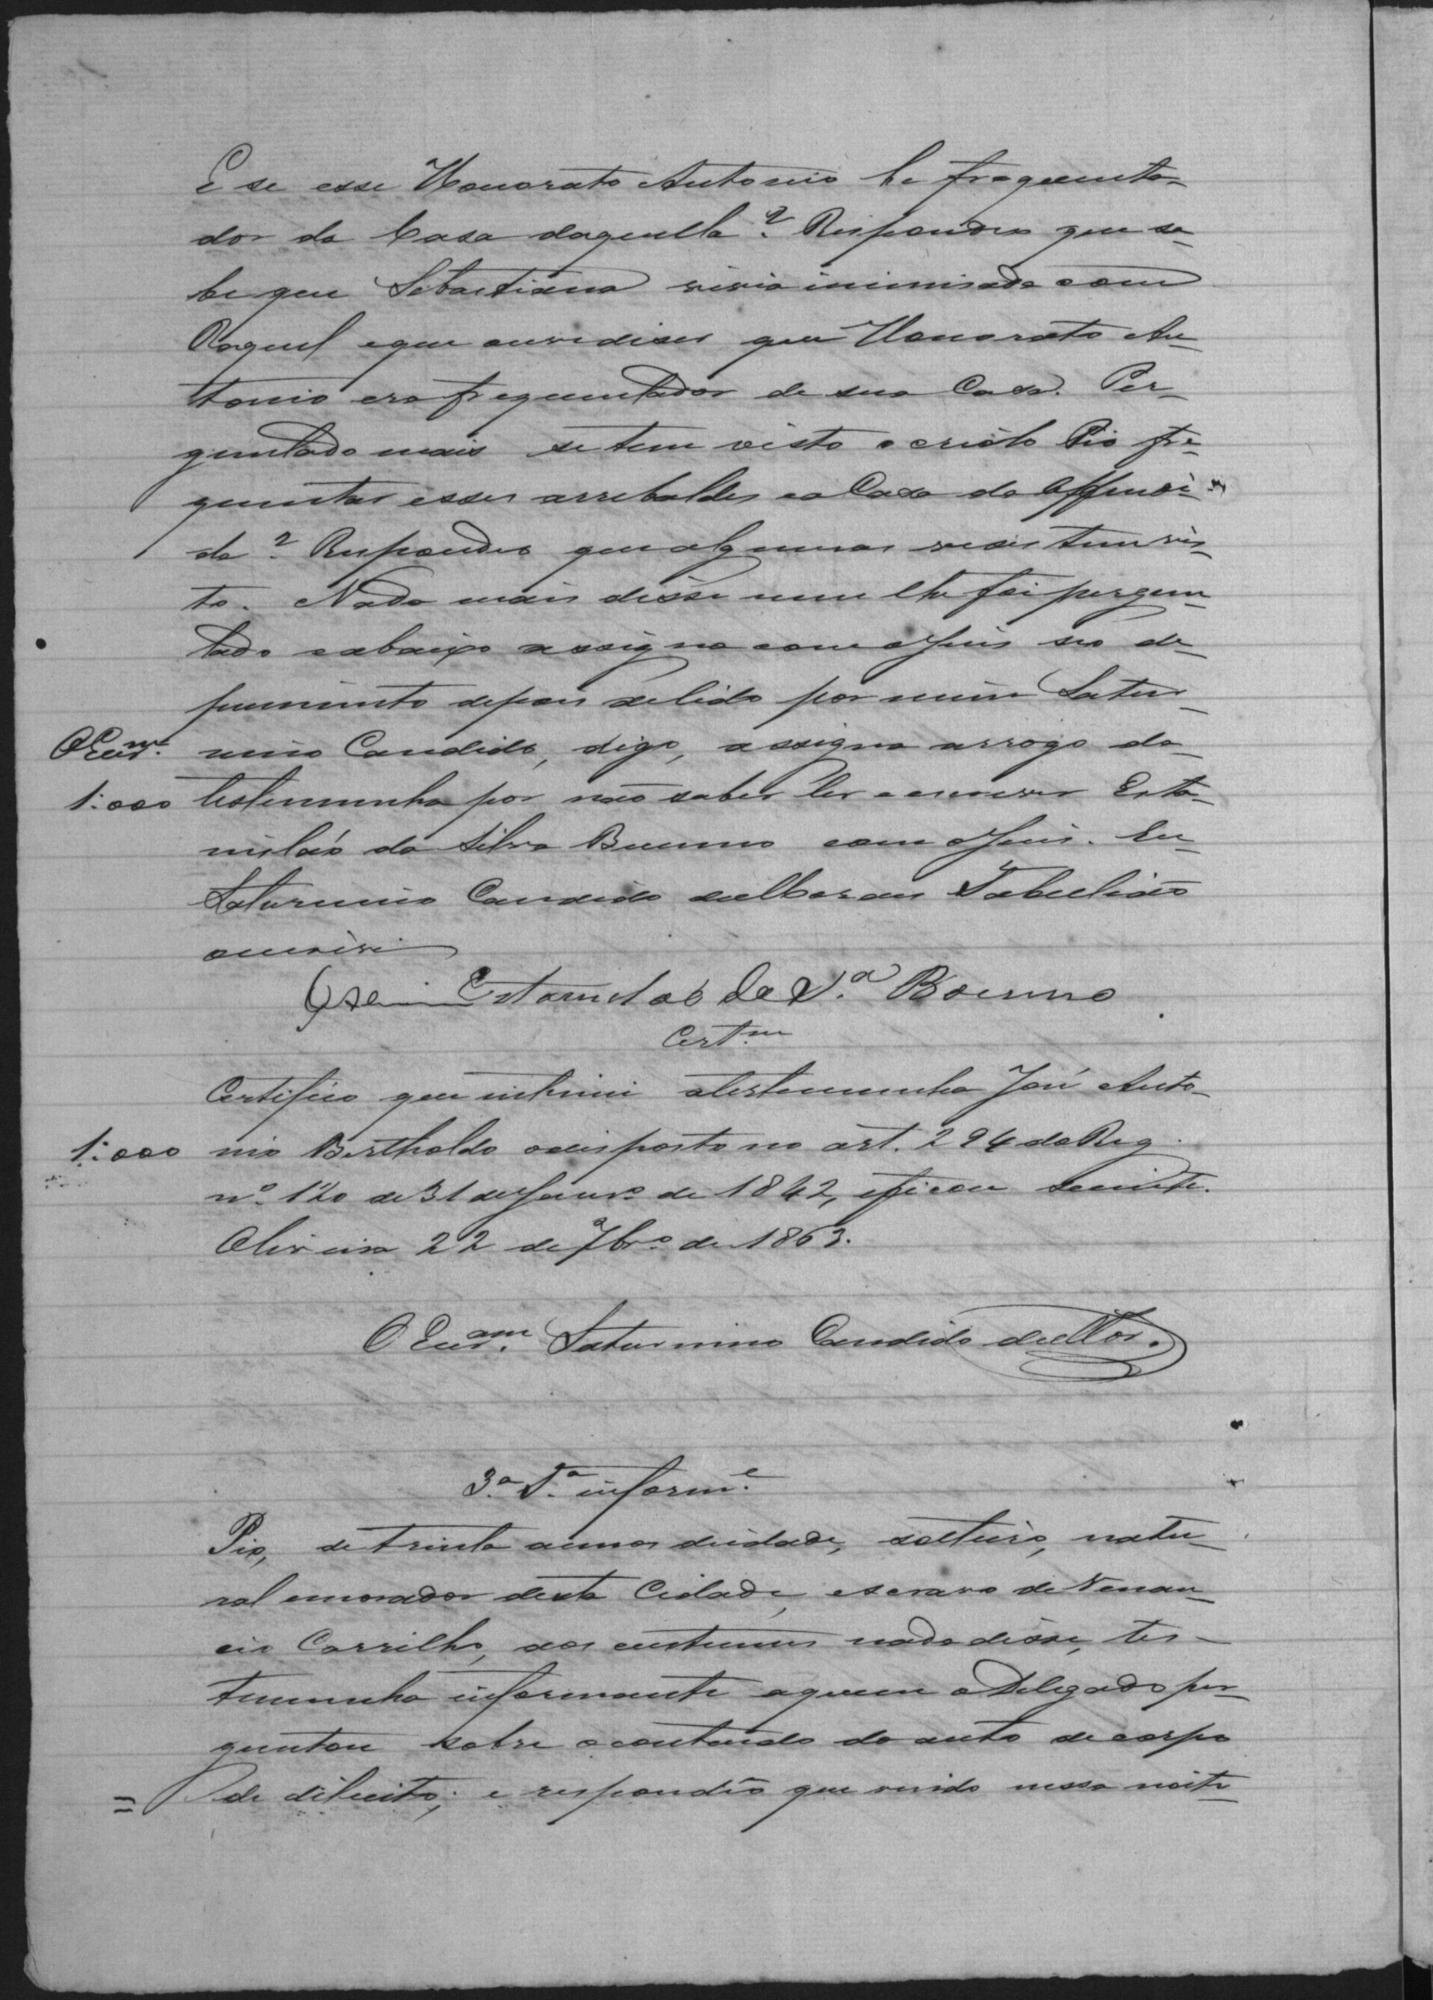 E se esse Honorato Antonio he frequenta-
dor da Casa daquella? Respondeo que sa-
be que Sebastiana vivia inimisada com
Raquel e que ouvio diser que Honorato An-
tonio era frequentador de sua Casa. Per-
guntado mais se tem visto o criôlo Pio fre-
quentar esses arrebaldes e a Casa da offendi-
da? Respondeo que algumas veses tem vis-
to. Nada mais disse nem lhe foi pergun-
tado e abaixo assigna com o Juis seo de-
puimento depois de lido por mim Satur-
O Escr.am nino Candido, digo, assigna arrogo da
1:000 testemunha por não saber ler e escrever Esta-
nisláo da Silva Buenno com o Juis. Eu
Saturnino Candido Tabelião
escrevi
Estanislaó da S.a Boenno
Cert.m
Certifico que intimei a testemunha José Anto-
1:000 nio Bertholdo o disposto no art. 294 do Reg.
nº 120 de 31 de Janrº de 1842, e ficou sciente.
Oliveira 22 de 7brº de 1863.
O Escr.am Saturnino Candido
3.a T.a inform.e
Pio, de trinta annos de idade, solteiro, natu-
ral e morador desta Cidade, escravo de Venan-
cio Carrilho, aos custumes nada disse, tes-
temunha informante a quem o Delegado per-
guntou sobre o contendo do auto de corpo
= de dilicito; e respondêo que vindo nessa noite